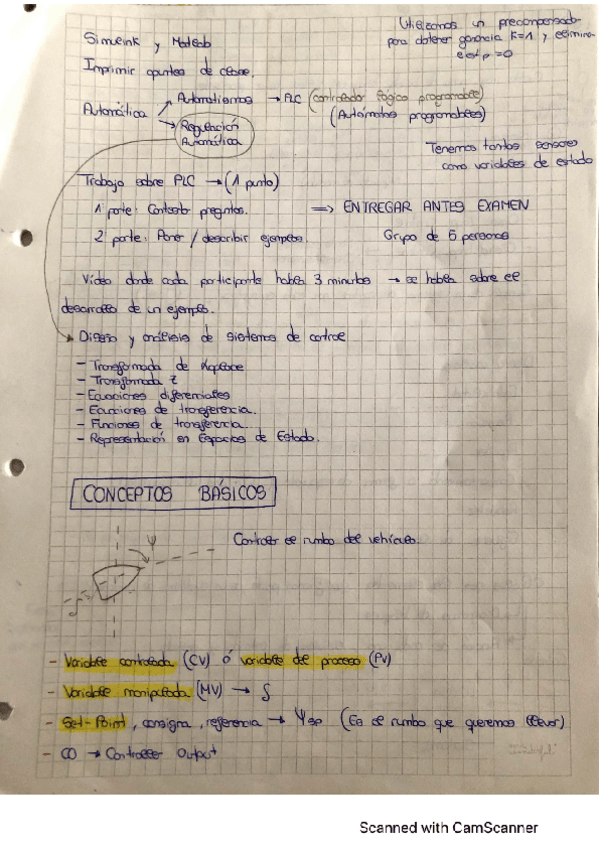 Utilizamos un precompensador
para obtener ganancia K=1 y elimina-
e est p = 0
Simulink y Matlab
Imprimir apuntes de clase.
Automática
Automatismos → PLC (controlador lógico programable)
(Autómatas programables)
Regulación
Automática
Tenemos tantos sensores
como variables de estado
Trabajo sobre PLC → (1 punto)
1ª parte: Contesto preguntas. ⇒ ENTREGAR ANTES EXAMEN
2ª parte: Poner / describir ejemplos. Grupo de 5 personas
Vídeo donde cada participante habla 3 minutos → se habla sobre el
desarrollo de un ejemplo.
Diseño y análisis de sistemas de control
- Transformada de Laplace
- Transformada Z
- Ecuaciones diferenciales
- Ecuaciones de transferencia.
- Funciones de transferencia.
- Representación en Espacios de Estado.
CONCEPTOS BÁSICOS
ψ
Controlar el rumbo del vehículo.
δ
- Variable controlada (CV) ó variable de proceso (PV)
- Variable manipulada (MV) → δ
- Set-Point, consigna, referencia → Ψsp (Es el rumbo que queremos llevar)
- CO → Controller Output
Scanned with CamScanner